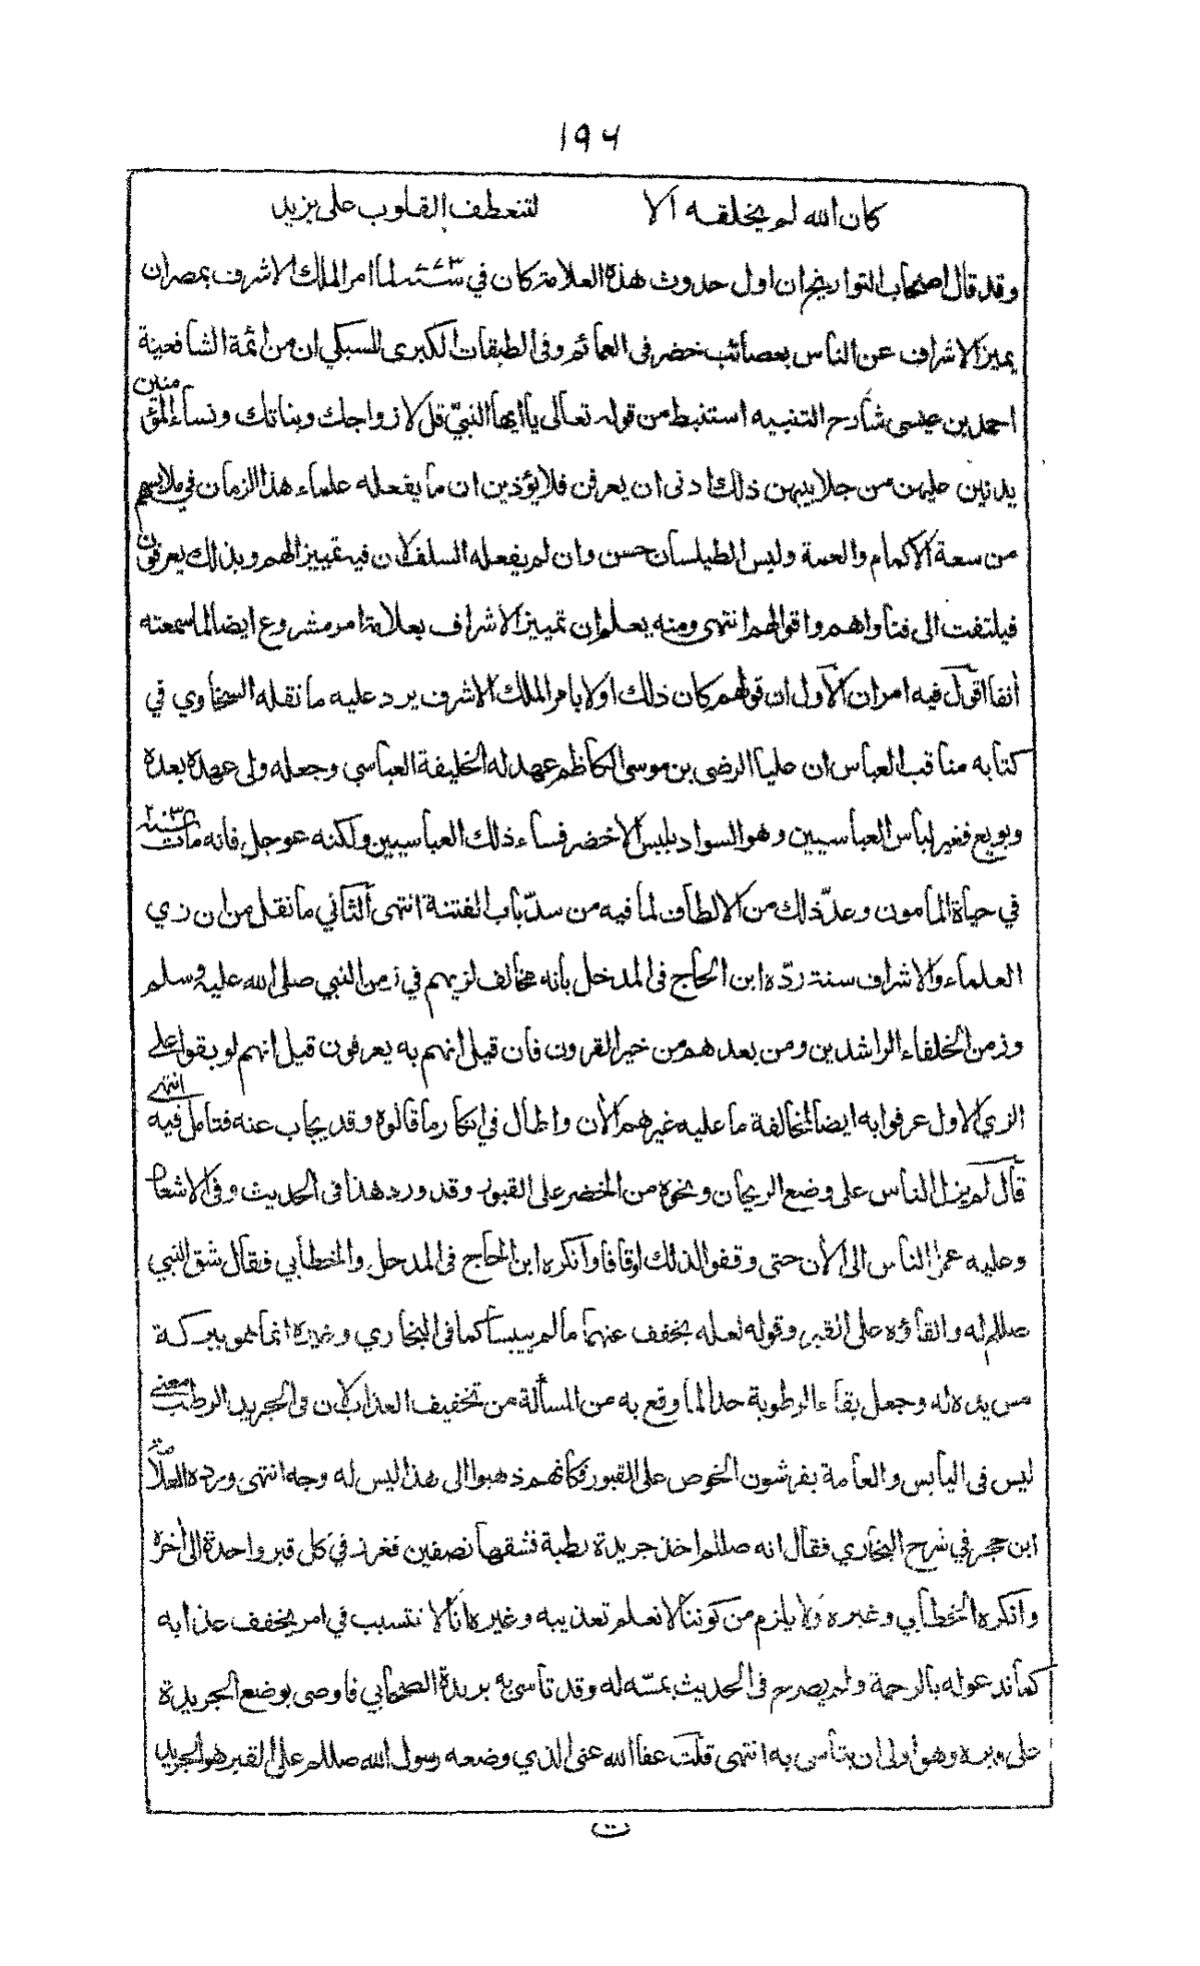 ١٩٤
كان الله لم يخلقه الا لتنعطف القلوب على يزيد
وقد قال اصحاب التواريخ ان اول حدوث هذه العلامة كان في سنة ٧٧٣ لما امر الملك الاشرف بمصر ان
يميز الاشراف عن الناس بعصائب خضر فى العمائم وفى الطبقات الكبرى للسبكي ان من ائمة الشافعية
احمد بن عيسى شارح التنبيه استنبط من قوله تعالى يا ايها النبيّ قل لازواجك وبناتك ونساء المؤمنين
يدنين عليهن من جلابيبهن ذلك ادنى ان يعرفن فلا يؤذين ان ما يفعله علماء هذا الزمان في ملابسهم
من سعة الاكمام والعمة ولبس الطيلسان حسن وان لم يفعله السلف لان فيه تمييزا لهم وبذلك يعرفون
فيلتفت الى فتاواهم واقوالهم انتهى ومنه يعلم ان تمييز الاشراف بعلامة امر مشروع ايضا لما سمعته
آنفا اقول فيه امران الاول ان قولهم كان ذلك اولا بامر الملك الاشرف يرد عليه ما نقله السخاوي في
كتابه مناقب العباس ان عليا الرضى بن موسى الكاظم عهد له الخليفة العباسي وجعله ولى عهده بعده
وبويع فغير لباس العباسيين وهو السواد بلبس الاخضر فساء ذلك العباسيين ولكنه عوجل فانه مات سنة ٢٠٣
في حياة المامون وعدّ ذلك من الالطاف لما فيه من سدّ باب الفتنة انتهى الثاني ما نقل من ان زي
العلماء والاشراف سنة ردّه ابن الحاج فى المدخل بانه مخالف لزيهم في زمن النبي صلى الله عليه وسلم
وزمن الخلفاء الراشدين ومن بعدهم من خير القرون فان قيل انهم به يعرفون قيل انهم لو بقوا على
الزي الاول عرفوا به ايضا لمخالفة ما عليه غيرهم الأن واطال في انكار ما قالوه وقد يجاب عنه فتامل فيه انتهى
قال لم يزل الناس على وضع الريحان ونحوه من الخضر على القبور وقد ورد هذا فى الحديث وفى الاشعار
وعليه عمل الناس الى الأن حتى وقفوا لذلك اوقافا وانكره ابن الحاج فى المدخل والخطابي فقال شق النبي
صللم له والقاؤه على القبر وقوله لعله يخفف عنهما ما لم ييبسا كما فى البخاري وغيره انما هو ببركة
مس يده له وجعل بقاء الرطوبة حدا لما وقع به من المسألة من تخفيف العذاب لان فى الجريد الرطب معنى
ليس فى اليابس والعامة يفرشون الخوص على القبور فكانهم ذهبوا الى هذا ليس له وجه انتهى ورده العلامة
ابن حجر في شرح البخاري فقال انه صللم اخذ جريدة رطبة فشقها نصفين فغرز في كل قبر واحدة الى أخره
وانكره الخطابي وغيره ولا يلزم من كوننا لا نعلم تعذيبه وغيره انا لا نتسبب في امر يخفف عذابه
كما ندعو له بالرحمة ولم يصرح فى الحديث بمسّه له وقد تأسى به بريدة الصحابي فاوصى بوضع الجريدة
على قبره وهو اولى ان يتأسى به انتهى قلت عفا الله عنى الذي وضعه رسول الله صللم على القبر هو الجريد
ت